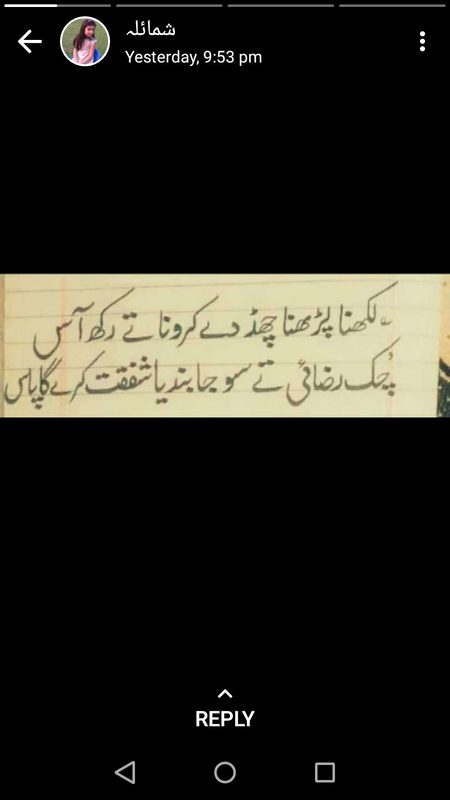 شمائلہ
Yesterday, 9:53 pm
لکھنا پڑھنا چھڈ دے کرونا تے رکھ آس
چُک رضائی تے سو جا بندیا شفقت کرے گا پاس
REPLY